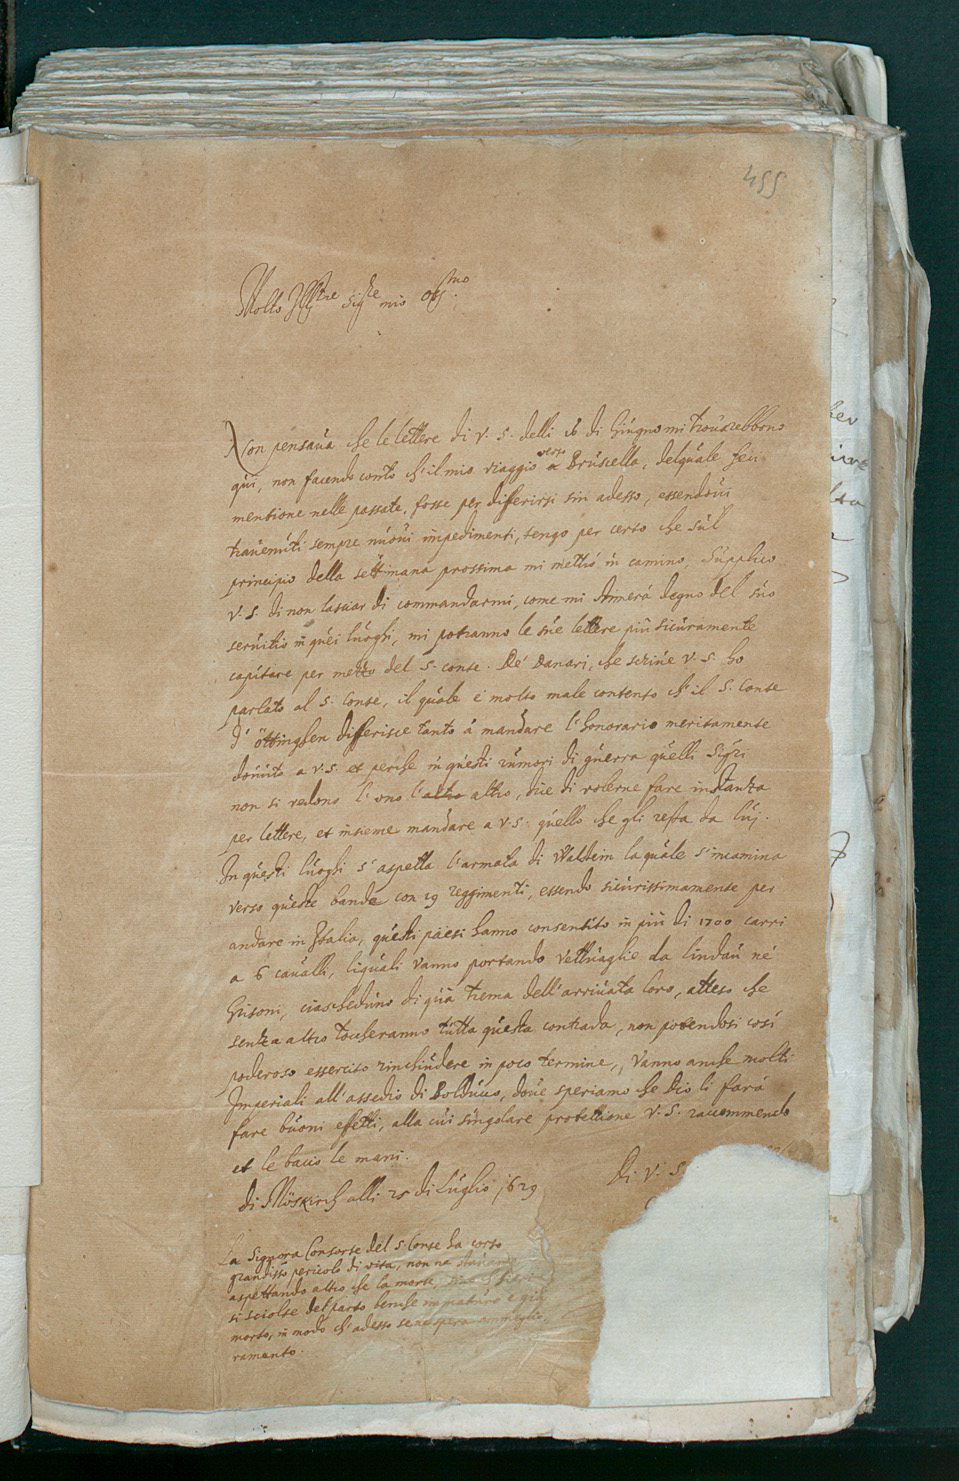 455
Molto Ill.tre Sig.re mio oss.mo
Non pensava che le lettere di V. S. delli 16 di Giugno mi trovarebbono
qui, non facendo conto ch'il mio viaggio verso Brusella, delquale feci
mentione nelle passate, fosse per differirsi sin adesso, essendovi
travenuti sempre nuovi impedimenti, tengo per certo che sul
principio della settimana prossima mi metto in camino, supplico
V. S. di non lasciar di commandarmi, come mi stimerá degno del suo
servitio in quei luoghi, mi potranno le sue lettere più sicuramente
capitare per mezzo del S. Conte. De' danari, che scrive V. S. ho
parlato al S. Conte, il quale è molto male contento ch'il S. Conte
d'Öttinghen differisce tanto á mandare l'honorario meritamente
dovuto a V. S. et perche in questi rumori di guerra quelli Sig.ri
non si vedono l'uno l'altro altro, dice di volerne fare instanza
per lettere, et insieme mandare a V. S. quello che gli resta da luj.
In questi luoghi s'aspetta l'armata di Waldtein la quale s'incamina
verso queste bande con 19 reggimenti, essendo sicurissimamente per
andare in Italia, questi paesi hanno consentito in più di 1700 carri
a 6 cavalli, liquali vanno portando vettuaglie da Lindau ne'
Grisoni, ciascheduno di quà trema dell'arrivata loro, atteso che
senza altro toccheranno tutta questa contrada, non potendosi così
poderoso essercito rinchiudere in poco termine, vanno anche molti
Imperiali all'assedio di Bolduco, dove speriamo che Dio li fará
fare buoni effetti, alla cui singolare protettione V. S. raccommendo
et le bacio le mani.
Di V. S.
di Möskirch alli 25 di Luglio 1629
La Signora Consorte del S. Conte ha corso
grandiss.o pericolo di vita, non ne
aspettando altro che la morte,
si sciolse del parto benche immaturo e già
morto, in modo ch'adesso se ne spera
ramento.